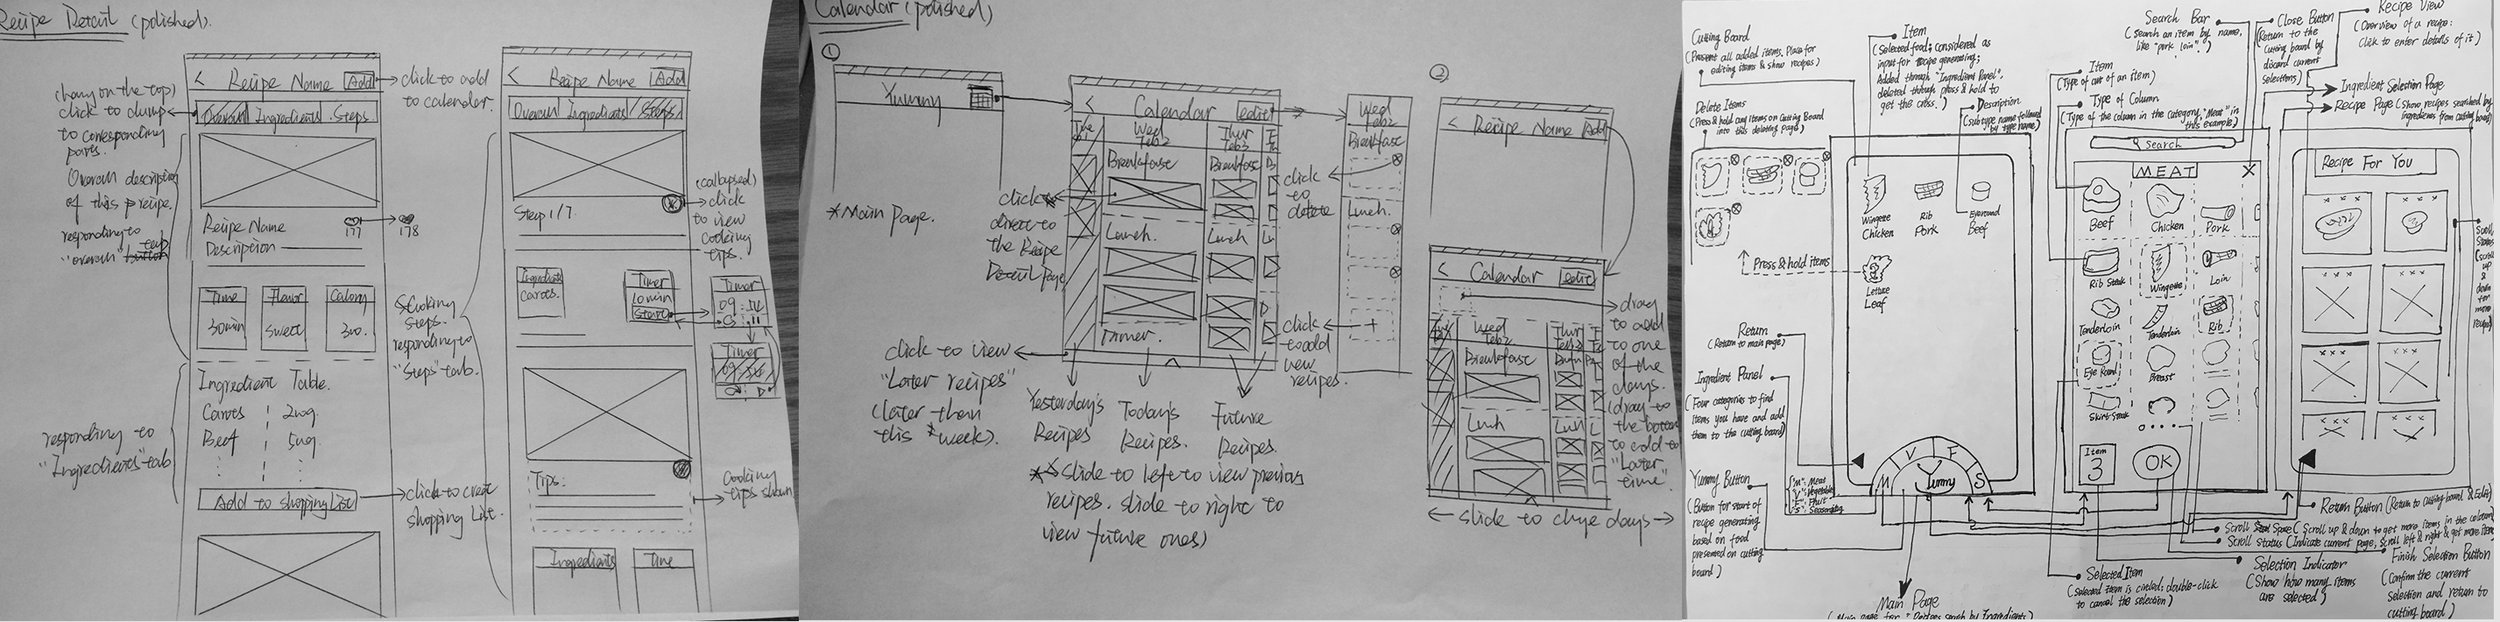 Recipe Detail (polished).
< Recipe Name Add
click to add
to calendar.
(hang on the top)
click to
to corresponding
parts.
Overall Ingredients Steps
Overall description
of this recipe.
responding to
"overall" tab
Recipe Name
177
178
Description
Time
30min
Flavor
sweet
Calory
300.
Ingredient Table.
Carots 200g.
Beef 50g.
responding to
"Ingredients" tab
Add to shopping List
click to creat
shopping List.
< Recipe Name Add
Overall Ingredients Steps
(collapsed)
click
to view
cooking
tips.
Step 1/7
Ingredients
Carots.
Timer
10min
Start
Timer
Timer
Cooking
steps.
responding to
"Steps" tab.
Tips:
Cooking
tips shown
Ingredients
Time
Calendar (polished)
①
Yummy
*Main Page.
< Calendar edit
Wed
Feb 2
Thur
Feb 3
Breakfast
Breakfast
Lunch.
Lunch
Dinner.
click
direct to
the Recipe
Detail page
click to view
"Later recipes"
(later than
this week).
Yesterday's
Recipes
Today's
Recipes.
Future
Recipes.
slide to left to view previous
recipes. slide to right to
view future ones)
Wed
Feb 2
Breakfast
Lunch.
click
to
delete
click
to add
new
recipes.
②
< Recipe Name Add
< Calendar edit
Wed
Feb 2
Thur
Feb 3
Breakfast
Lunch
Lunch
drag
to add
to one
of the
days.
(drag to
the bottom
to add to
"Later"
time.
slide to change days
Cutting Board
(Present all added items. Place for
editing items & show recipes)
Item
(Selected food; considered as
input for recipe generating;
Added through "Ingredient Panel",
deleted through press & hold to
get the cross.)
Delete Items
(Press & hold any items on Cutting Board
into this deleting page)
Description
(Subtype name followed
by type name)
Press & hold items
Wingette
Chicken
Rib
Pork
Eyeround
Beef
Lettuce
Leaf
Return
(Return to main page)
Ingredient Panel
(Four categories to find
items you have and add
them to the cutting board)
Yummy Button
(Button for start of
recipe generating
based on food
presented on cutting
board)
"M": Meat
"V": Vegetable
"F": Fruit
"S": Seasoning
M V F S
Yummy
Main Page
Search Bar
(Search an item by name,
like "pork loin".)
Item
(Type of cut of an item)
Type of Column
(Type of the column in the category, "Meat" in
this example)
Close Button
(Return to the
cutting board by
discard current
selections)
Recipe View
(Overview of a recipe:
click to enter details of it)
Ingredient Selection Page
Recipe Page (Show recipes searched by
ingredients from cutting board)
Search
MEAT X
Beef
Chicken
Pork
Rib Steak
Wingette
Loin
Tenderloin
Tenderloin
Rib
Eye Round
Breast
Skirt Steak
Item
3
OK
Recipe For You
Scroll
Status
(scroll
up
&
down
for
more
recipes)
Return Button (Return to cutting board & Edit)
Scroll Space (Scroll up & down to get more items in the column)
Scroll Status (Indicate current page, scroll left & right to get more items)
Selected Item
(Selected item is circled; double-click
to cancel the selection)
Selection Indicator
(Show how many items
are selected)
Finish Selection Button
(Confirm the current
selection and return to
cutting board)